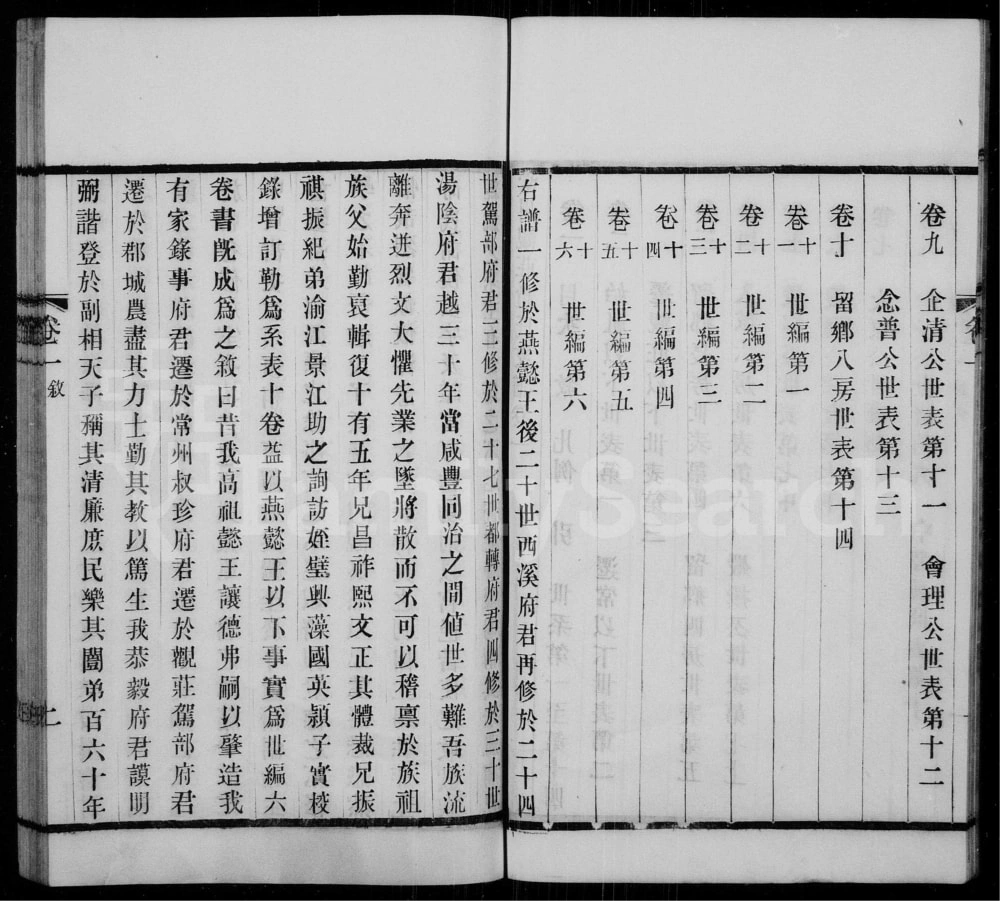 卷九 企淸公世表第十一 會理公世表第十二
念普公世表第十三
卷十 留鄉八房世表第十四
卷十一 世編第一
卷十二 世編第二
卷十三 世編第三
卷十四 世編第四
卷十五 世編第五
卷十六 世編第六
右譜一修於燕懿王後二十世西溪府君再修於二十四
世駕部府君三修於二十七世都轉府君四修於三十世
湯陰府君越三十年當咸豐同治之間値世多難吾族流
離奔迸烈文大懼先業之墜將散而不可以稽稟於族祖
族父始勤裒輯復十有五年兄昌祚熙文正其體裁兄振
祺振紀弟渝江景江助之詢訪姪璧興藻國英潁子實校
錄增訂勒爲系表十卷益以燕懿王以下事實爲世編六
卷書旣成爲之敘曰昔我高祖懿王讓德弗嗣以肇造我
有家錄事府君遷於常州叔珍府君遷於觀莊駕部府君
遷於郡城農盡其力士勤其敎以篤生我恭毅府君謨明
弼諧登於副相天子稱其淸廉庶民樂其闓弟百六十年
卷一 敘